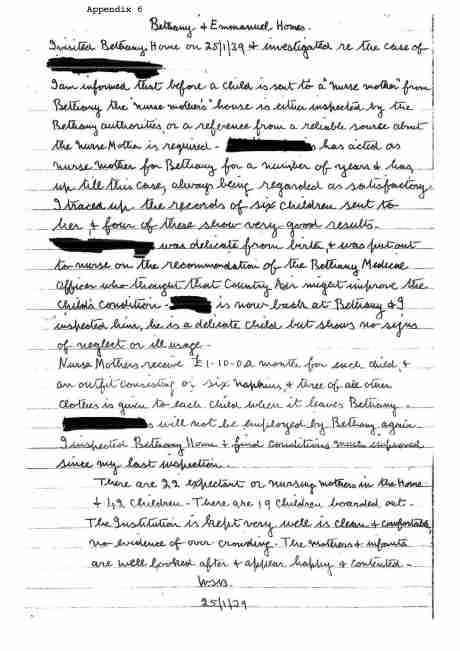 Appendix 6
Bethany & Emmanuel Homes.
I visited Bethany Home on 25/1/39 & investigated re the case of
I am informed that before a child is sent to a "nurse mother" from
Bethany the "nurse mother's" house is either inspected by the
Bethany authorities, or a reference from a reliable source about
the Nurse Mother is required - has acted as
nurse mother for Bethany for a number of years & has,
up till this case, always being regarded as satisfactory
I traced up the records of six children sent to
her & four of these show very good results.
was delicate from birth, & was put out
to nurse on the recommendation of the Bethany Medical
Officer who thought that Country Air might improve the
Child's condition - is now back at Bethany & I
inspected him, he is a delicate child but shows no signs
of neglect or ill usage -
Nurse Mothers receive £1-10-0 a month for each child, &
an outfit consisting of six napkins, & three of all other
clothes is given to each child when it leaves Bethany -
will not be employed by Bethany again.
I inspected Bethany Home & find conditions much improved
since my last inspection.
There are 22 expectant or nursing mothers in the Home
& 42 Children - There are 19 Children boarded out -
The Institution is kept very well is clean & comfortable,
no evidence of over crowding - The mothers & infants
are well looked after & appear happy & contented -
25/1/39